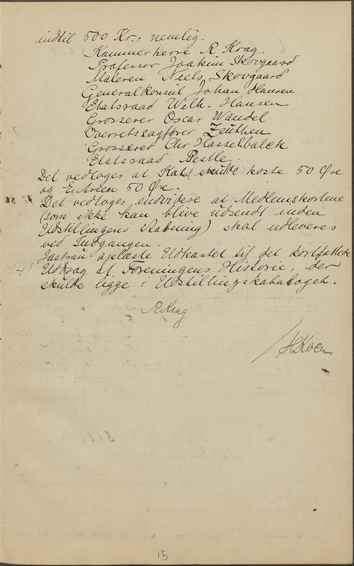 indtil 500 Kr.: nemlig.
Kammerherre R. Krag.
Professor Joakim Skovgaard
Maleren Niels Skovgaard
Generalkonsul Johan Hansen
Etatsraad Wilh. Hansen
Grosserer Oscar Wandel
Overretssagfører Zeuthen
Grosserer Chr Hasselbalch
Etatsraad Bestle.
Det vedtoges at Kat. skulde koste 50 Øre
og Entréen 50 Øre.
Det vedtoges endvidere at Medlemskortene
(som ikke kan blive udsendt inden
Udstillingens Aabning) skal udleveres
ved Indgangen.
oplæste Udkastet til det kortfattede
Udtog af Foreningens Historie, der
skulde ligge i Udstillingskataloget.
RKrag
15